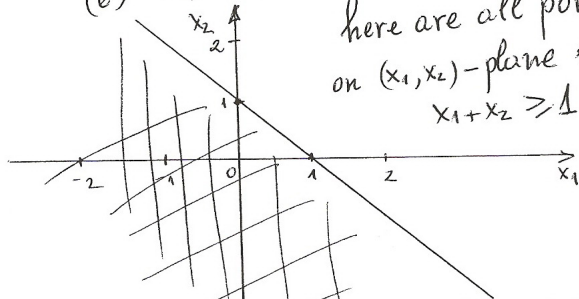 (c)
here are all poi
on (x₁,x₂)-plane
x₁+x₂ ⩾ 1
x₂
2
1
-2
1
0
1
2
x₁